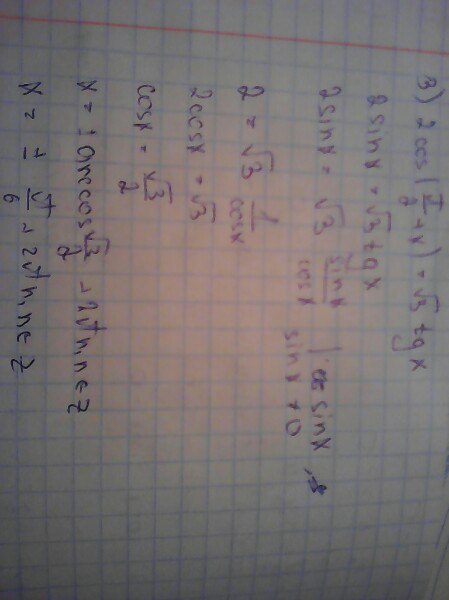 3) 2cos(π/2 + x) = √3 tg x
2 sin x = √3 tg x
2 sin x = √3 sin x/cos x | : sin x
sin x ≠ 0
2 = √3 1/cos x
2cos x = √3
cos x = √3/2
x = ± arccos √3/2 - 2πn, n∈Z
x = ± π/6 - 2πn, n∈Z